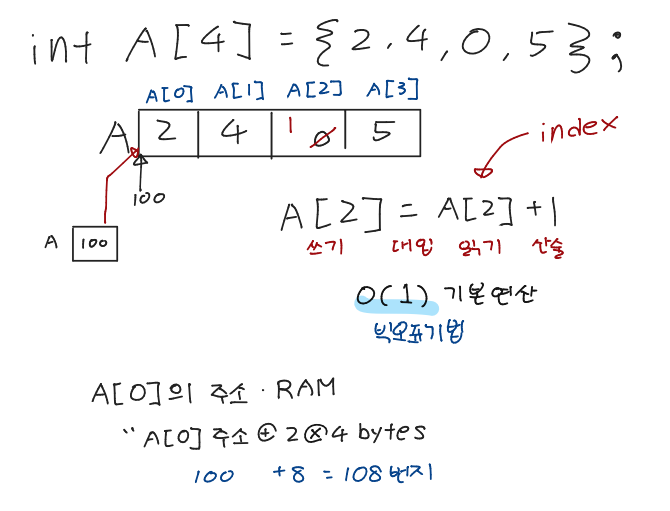 int A[4] = {2, 4, 0, 5};
A[0] A[1] A[2] A[3]
A 2 4 1 0 5
100
A 100
index
A[2] = A[2] + 1
쓰기 대입 읽기 산술
O(1) 기본연산
빅오표기법
A[0]의 주소 · RAM
" A[0] 주소 ⊕ 2 ⊗ 4 bytes
100 + 8 = 108번지